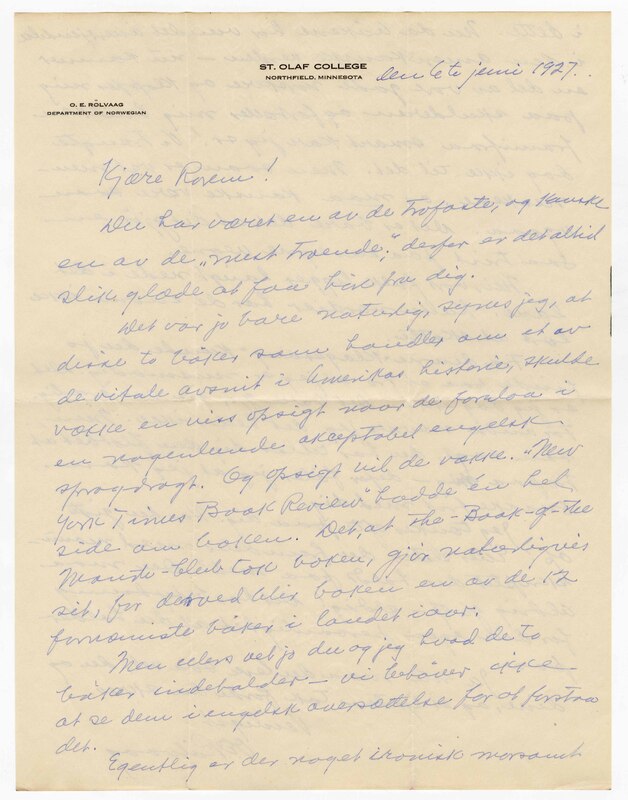 ST. OLAF COLLEGE
NORTHFIELD, MINNESOTA
den 6te juni 1927.
O. E. RÖLVAAG
DEPARTMENT OF NORWEGIAN
Kjære Rovem!
Du har været en av de trofaste, og kanske
en av de „mest troende“; derfor er det altid
slik glæde at faa brev fra dig.
Det var jo bare naturlig, synes jeg, at
disse to bøker som handler om et av
de vitale avsnit i Amerikas historie, skulde
vække en viss opsigt naar de forelaa i
en nogenlunde akceptabel engelsk
sprogdragt. Og opsigt vil de vække. "New
York Times Book Review" hadde én hel
side om boken. Det, at the-Book-of-the
Month-Club tok boken, gjør naturligvis
sit, for derved blir boken en av de 12
fornemste bøker i landet iaar.
Men ellers vet jo du og jeg hvad de to
bøker indeholder – vi behøver ikke
at se dem i engelsk oversættelse for at forstaa
det.
Egentlig er der noget ironisk morsomt